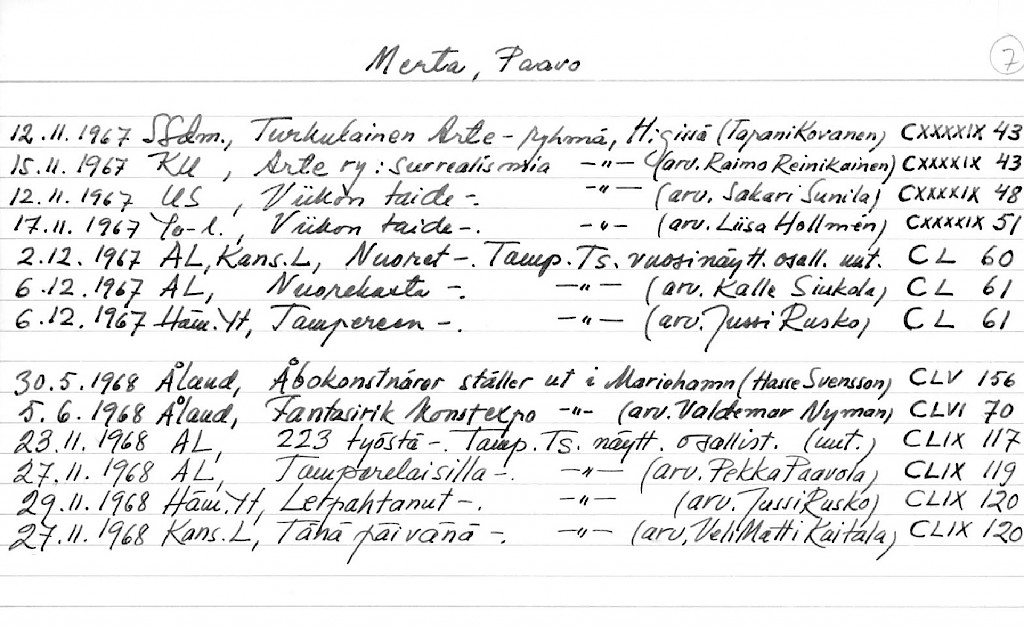 Merta, Paavo 7
12.11.1967 SSdm., Turkulainen Arte-ryhmä, H:gissä (Tapani Kovanen) CXXXXIX 43
15.11.1967 KU, Arte ry: surrealismia -"- (arv. Raimo Reinikainen) CXXXXIX 43
12.11.1967 US, Viikon taide-. -"- (arv. Sakari Sunila) CXXXXIX 48
17.11.1967 Yo-l., Viikon taide-. -"- (arv. Liisa Hollmén) CXXXXIX 51
2.12.1967 AL, Kans.L, Nuoret-. Tamp. Ts. vuosinäytt. osall. uut. CL 60
6.12.1967 AL, Nuorekasta -. -"- (arv. Kalle Siukola) CL 61
6.12.1967 Häm.Yt, Tampereen -. -"- (arv. Jussi Rusko) CL 61
30.5.1968 Åland, Åbokonstnärer ställer ut i Mariehamn (Hasse Svensson) CLV 156
5.6.1968 Åland, Fantasirik konstexpo -"- (arv. Valdemar Nyman) CLVI 70
23.11.1968 AL, 223 työstä-. Tamp. Ts. näytt. osallist. (uut.) CLIX 117
27.11.1968 AL, Tamperelaisilla-. -"- (arv. Pekka Paavola) CLIX 119
29.11.1968 Häm.Yt, Lerpahtanut-. -"- (arv. Jussi Rusko) CLIX 120
27.11.1968 Kans.L, Tänä päivänä -. -"- (arv. Veli Matti Kaitala) CLIX 120